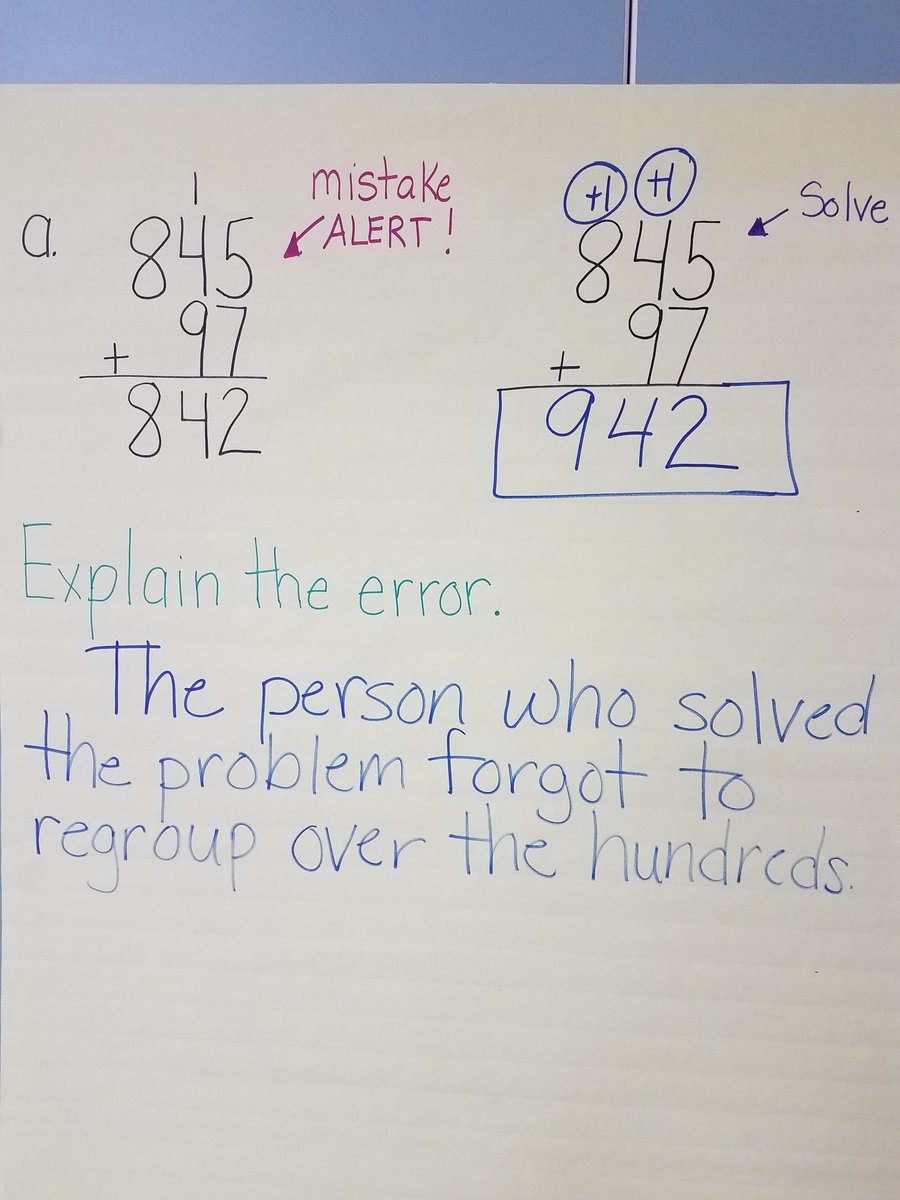 1
a. 845
+ 97
842
mistake
ALERT!
+1 +1
845
+ 97
942
Solve
Explain the error.
The person who solved
the problem forgot to
regroup over the hundreds.